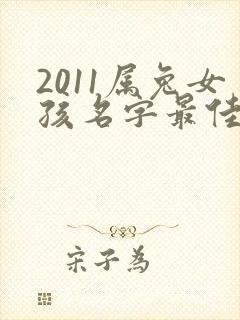 2011属兔女
孩名字最佳
宋子为